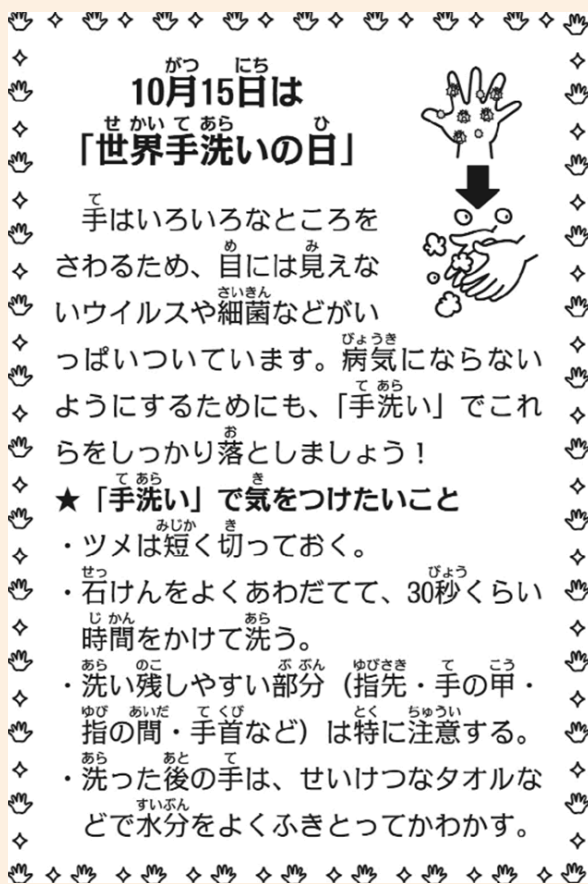 10月15日は
「世界手洗いの日」
手はいろいろなところを
さわるため、目には見えな
いウイルスや細菌などがい
っぱいついています。病気にならない
ようにするためにも、「手洗い」でこれ
らをしっかり落としましょう！
★「手洗い」で気をつけたいこと
・ツメは短く切っておく。
・石けんをよくあわだてて、30秒くらい
時間をかけて洗う。
・洗い残しやすい部分（指先・手の甲・
指の間・手首など）は特に注意する。
・洗った後の手は、せいけつなタオルな
どで水分をよくふきとってかわかす。